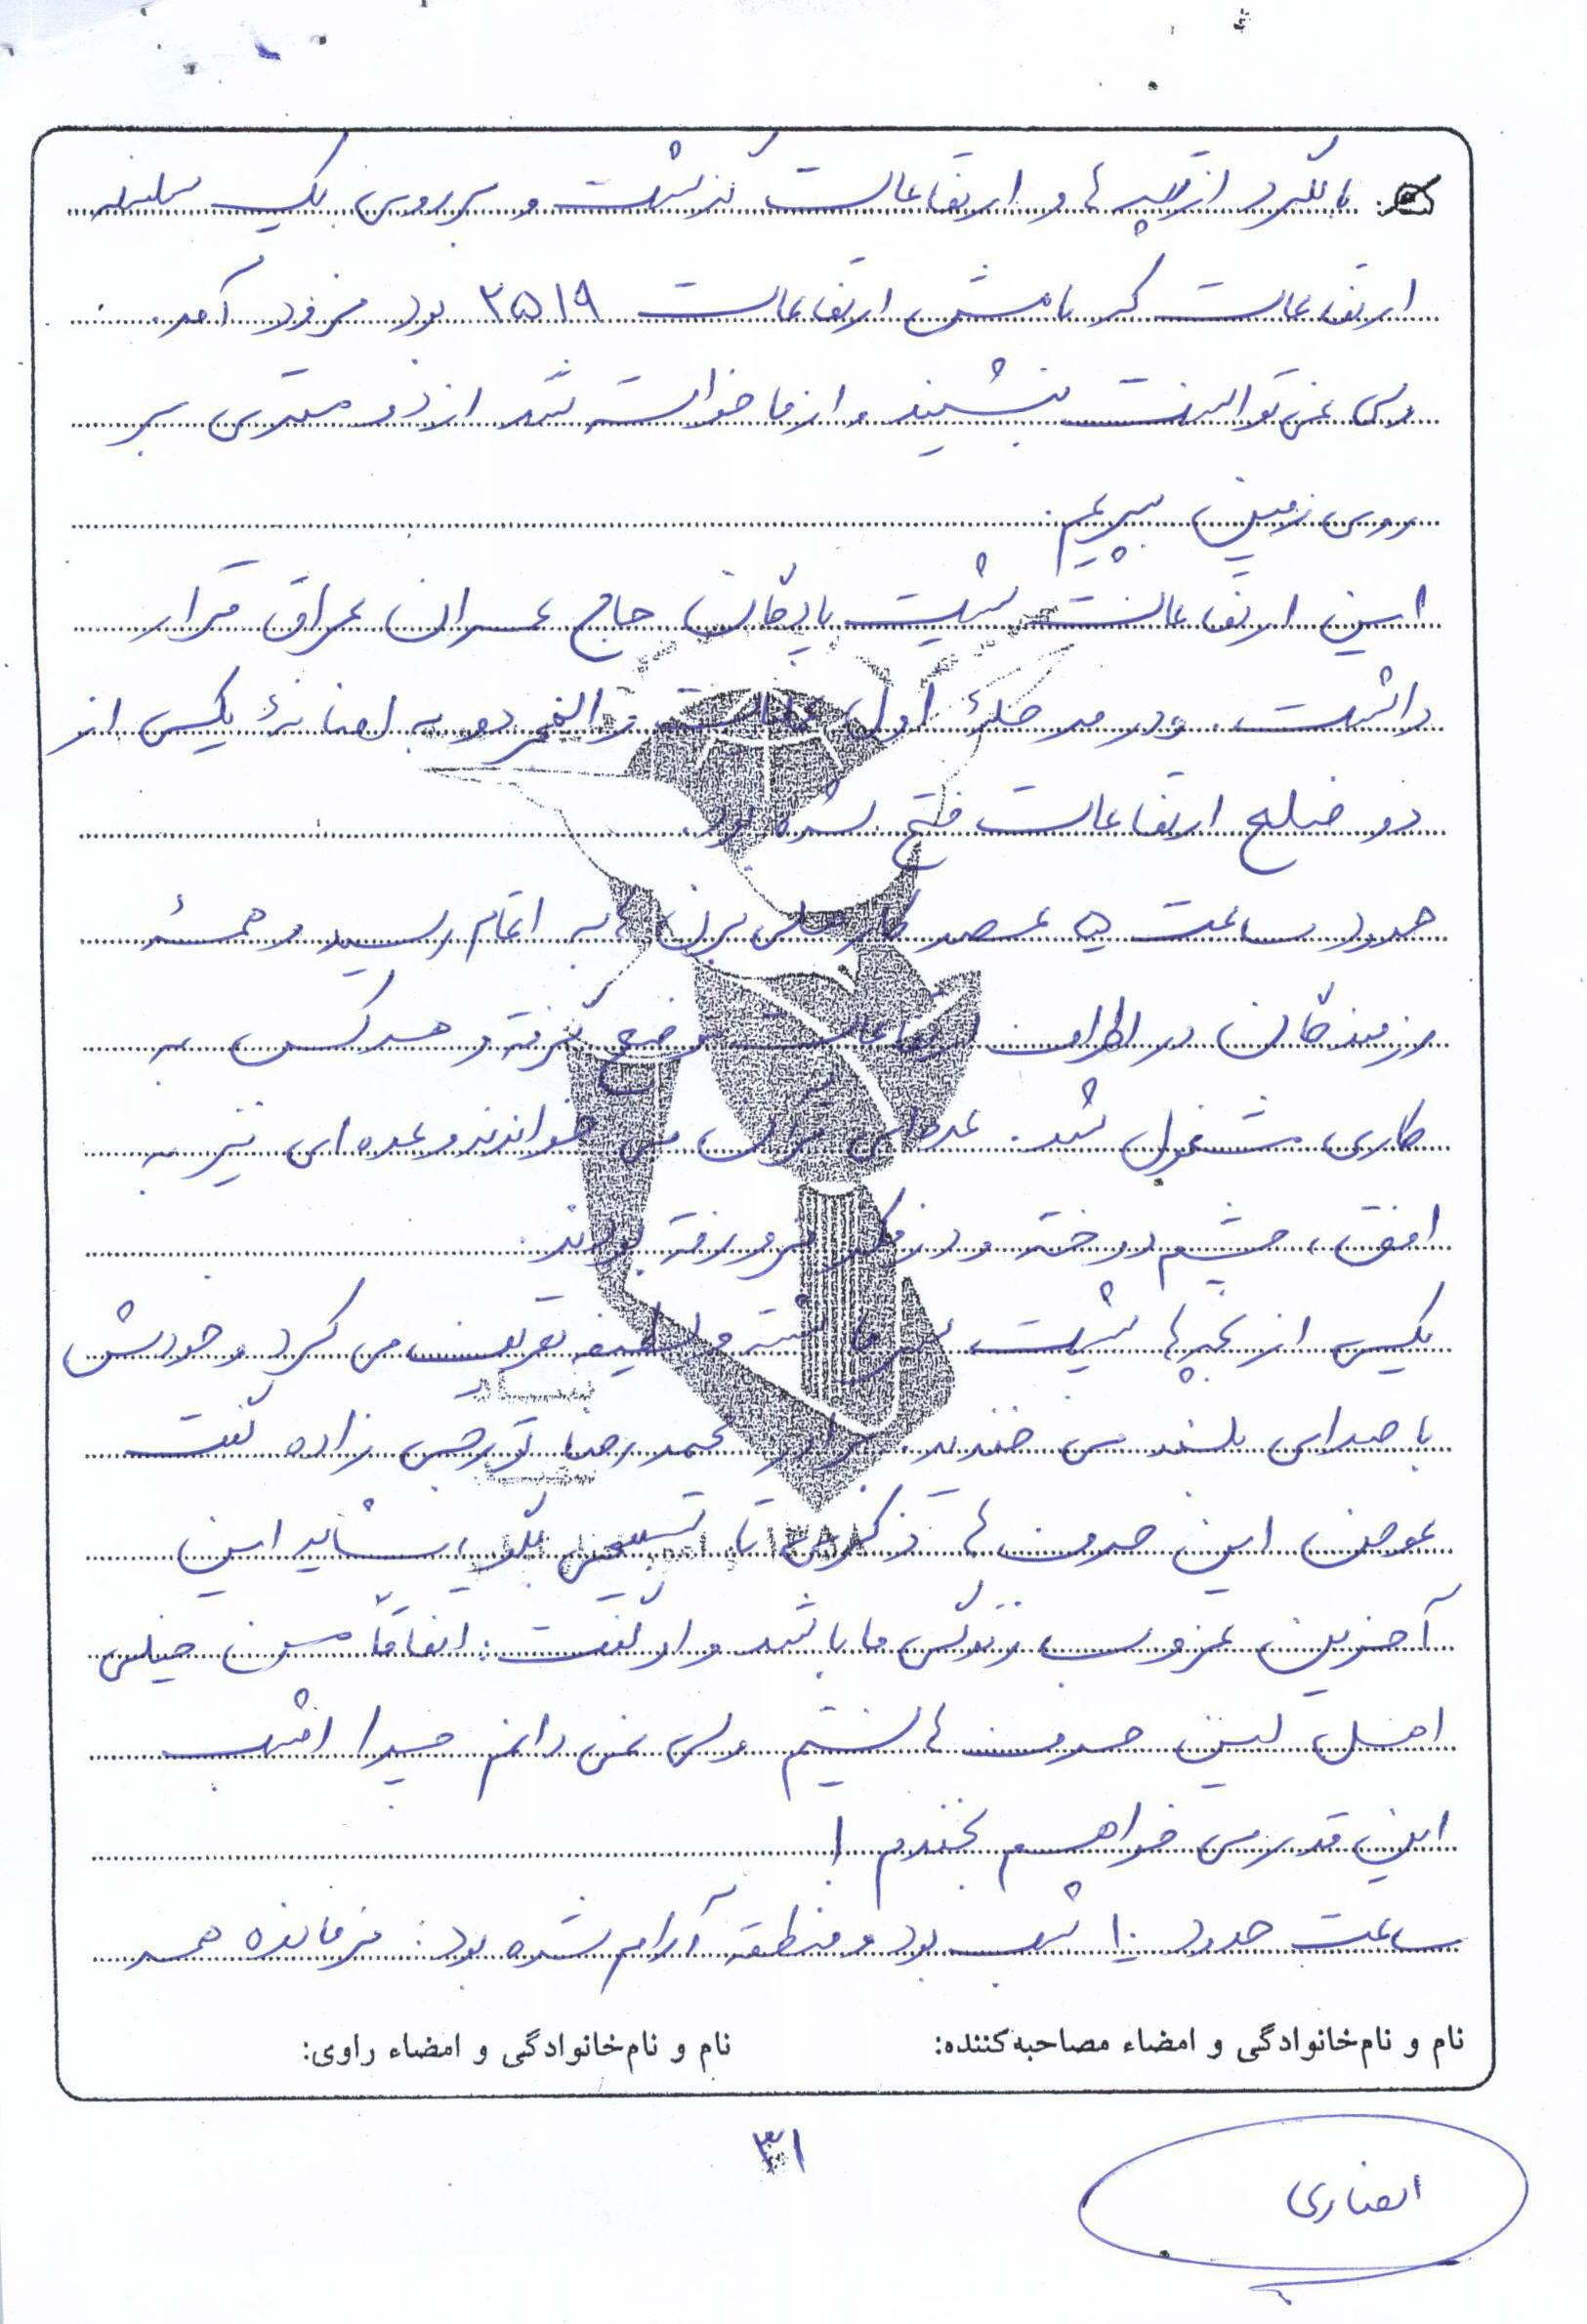 بالگرد از تپه ها و ارتفاعات گذشت و بر روی یک سلسله
ارتفاعات که نامش ارتفاعات ۲۵۱۹ بود فرود آمد.
ولی نمی توانست بنشیند و از ما خواسته شد از دو متری بر
روی زمین بپریم.
این ارتفاعات پشت پادگان حاج عمران عراق قرار
داشت. و در مرحلهٔ اول عملیات والفجر دو به اضافهٔ یکی از
دو ضلع ارتفاعات فتح شده بود.
حدود ساعت ۵ عصر کار هلی برن ها به اتمام رسید و همهٔ
رزمندگان در اطراف ارتفاعات موضع گرفته و هر کس به
کاری مشغول شد. عده ای قرآن می خواندند و عده ای نیز به
افق، چشم دوخته و در فکر فرو رفته بودند.
یکی از بچه ها پشت سر ما نشسته و لطیفه تعریف می کرد و خودش
با صدای بلند می خندید. برادر محمد رضا تورجی زاده گفت
عوض این حرف ها ذکری تا تسبیحی بگوی، شاید این
آخرین غروب زندگی ما باشد و او گفت: اتفاقاً من خیلی
اهل این حرف ها نیستم ولی نمی دانم چرا امشب
این قدر می خواهم بخندم!
ساعت حدود ۱۰ شب بود و منطقه آرام شده بود. فرمانده همه
نام و نام‌خانوادگی و امضاء مصاحبه‌کننده: نام و نام‌خانوادگی و امضاء راوی:
۳۱
انصاری